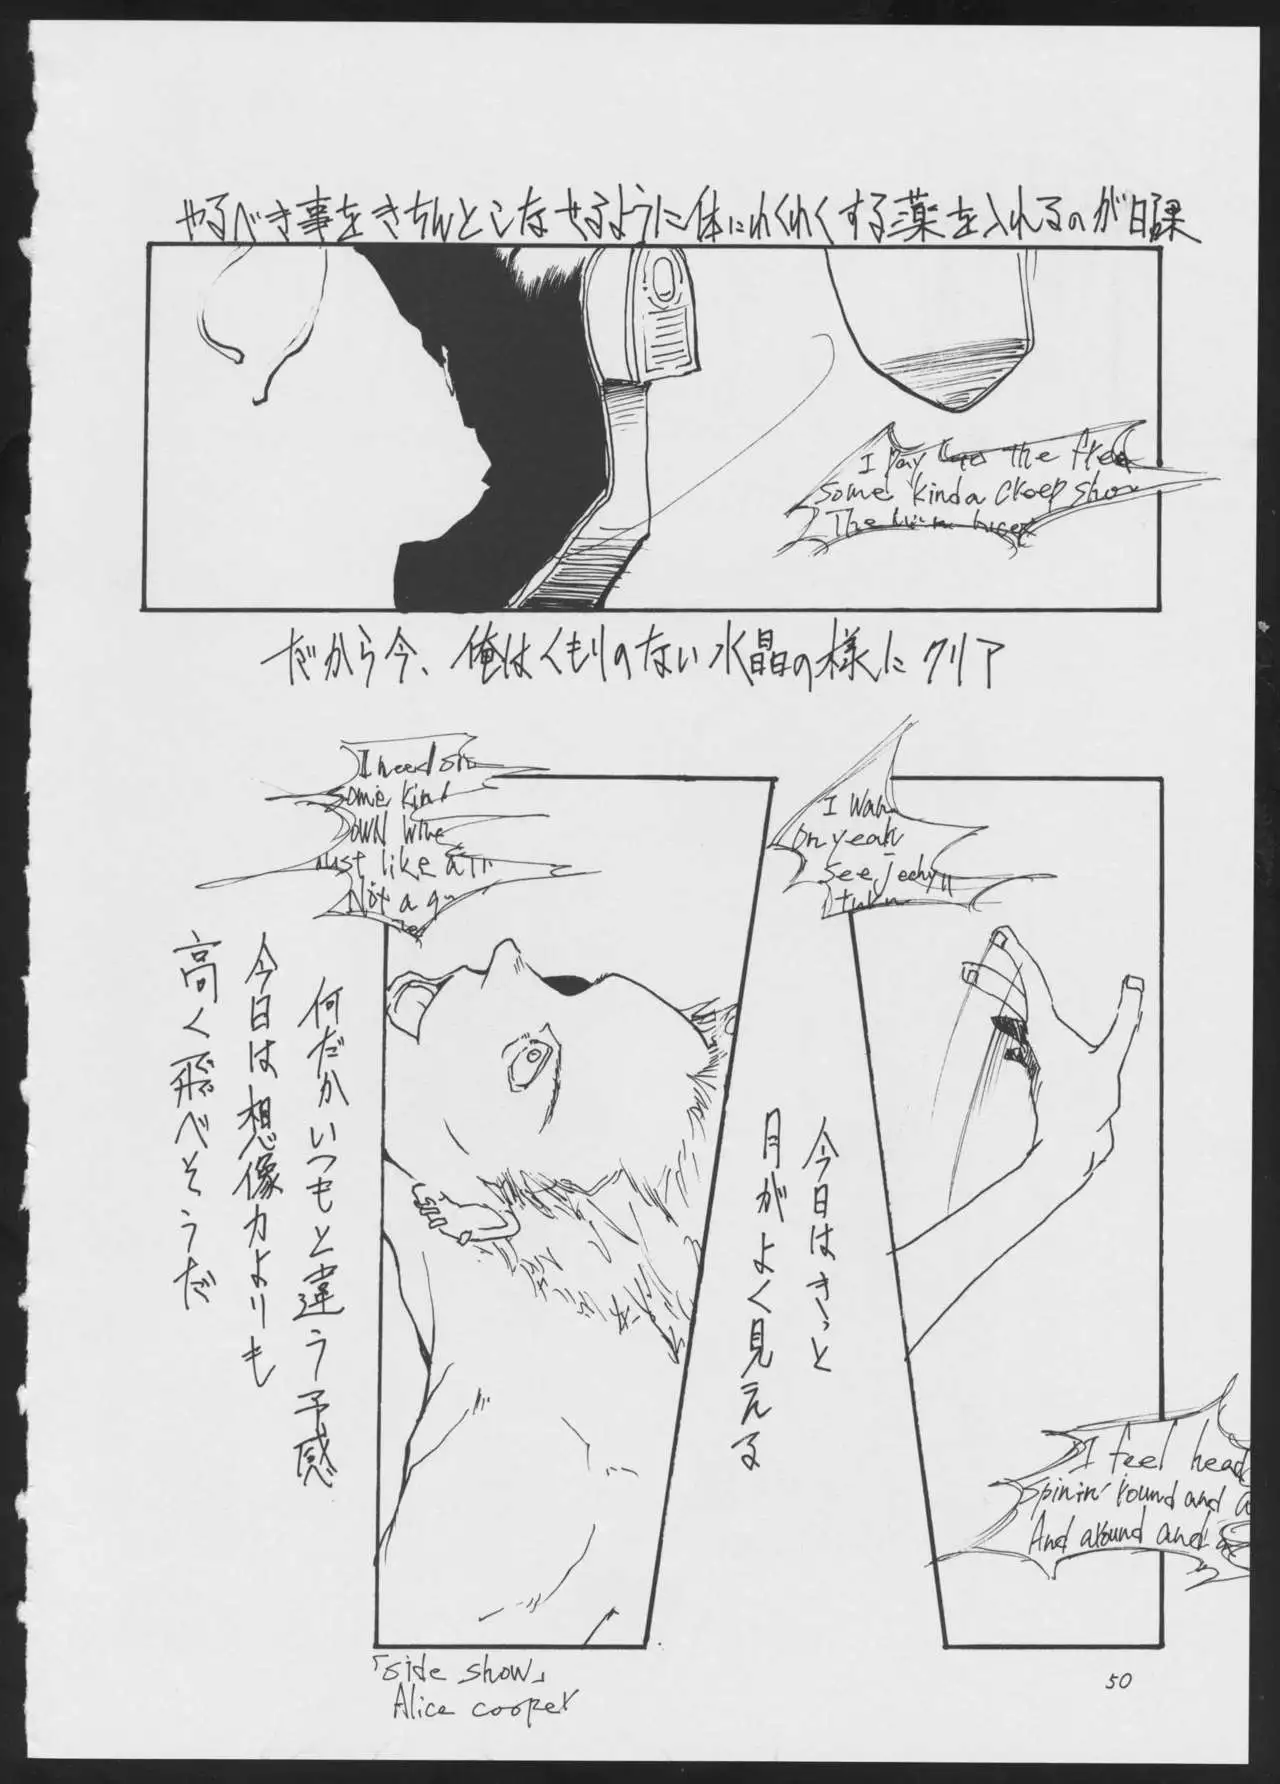 やるべき事をきちんとこなせるように体にわくわくする薬を入れるのが日課
I pay the free
some kinda creep show
The
だから今、俺はくもりのない水晶の様にクリア
I
on yeah
see
今日はきっと
月がよく見える
I need
some kin
own
just like a
Not a
何だかいつもと違う予感
今日は想像力よりも
高く飛べそうだ
I feel head
spinin' round and a
And around and
「side show」
Alice cooper
50